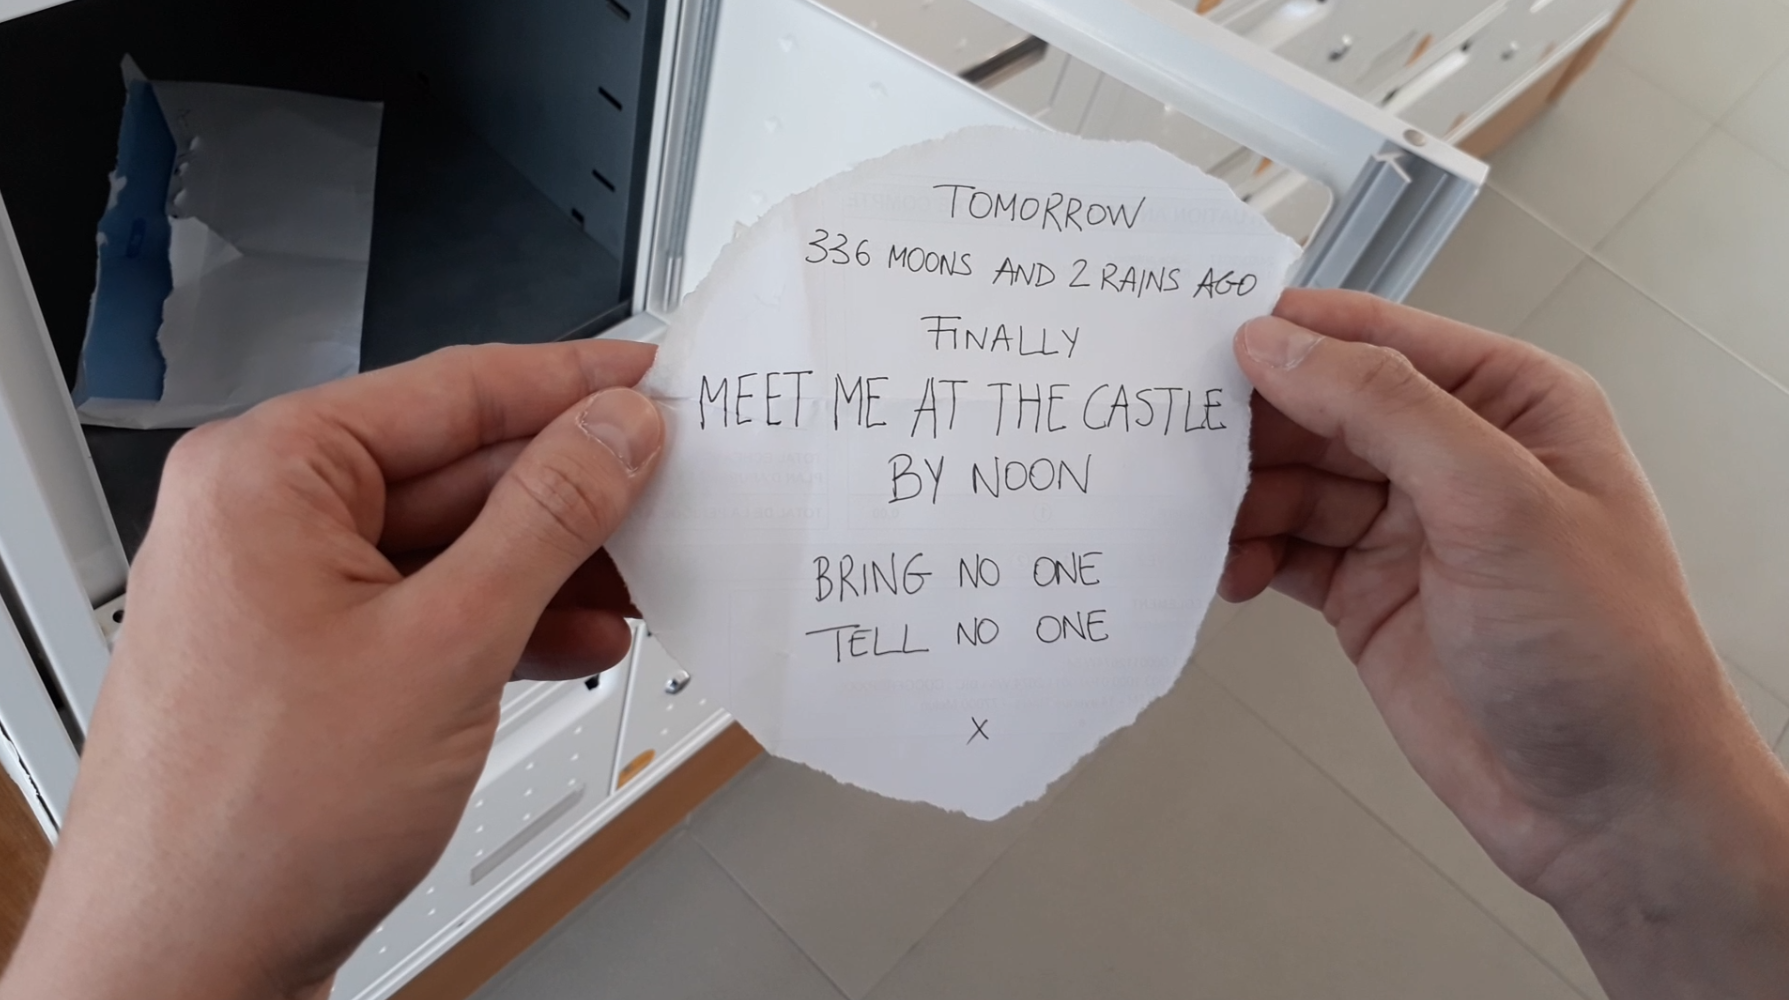 TOMORROW
336 MOONS AND 2 RAINS AGO
FINALLY
MEET ME AT THE CASTLE
BY NOON
BRING NO ONE
TELL NO ONE
X